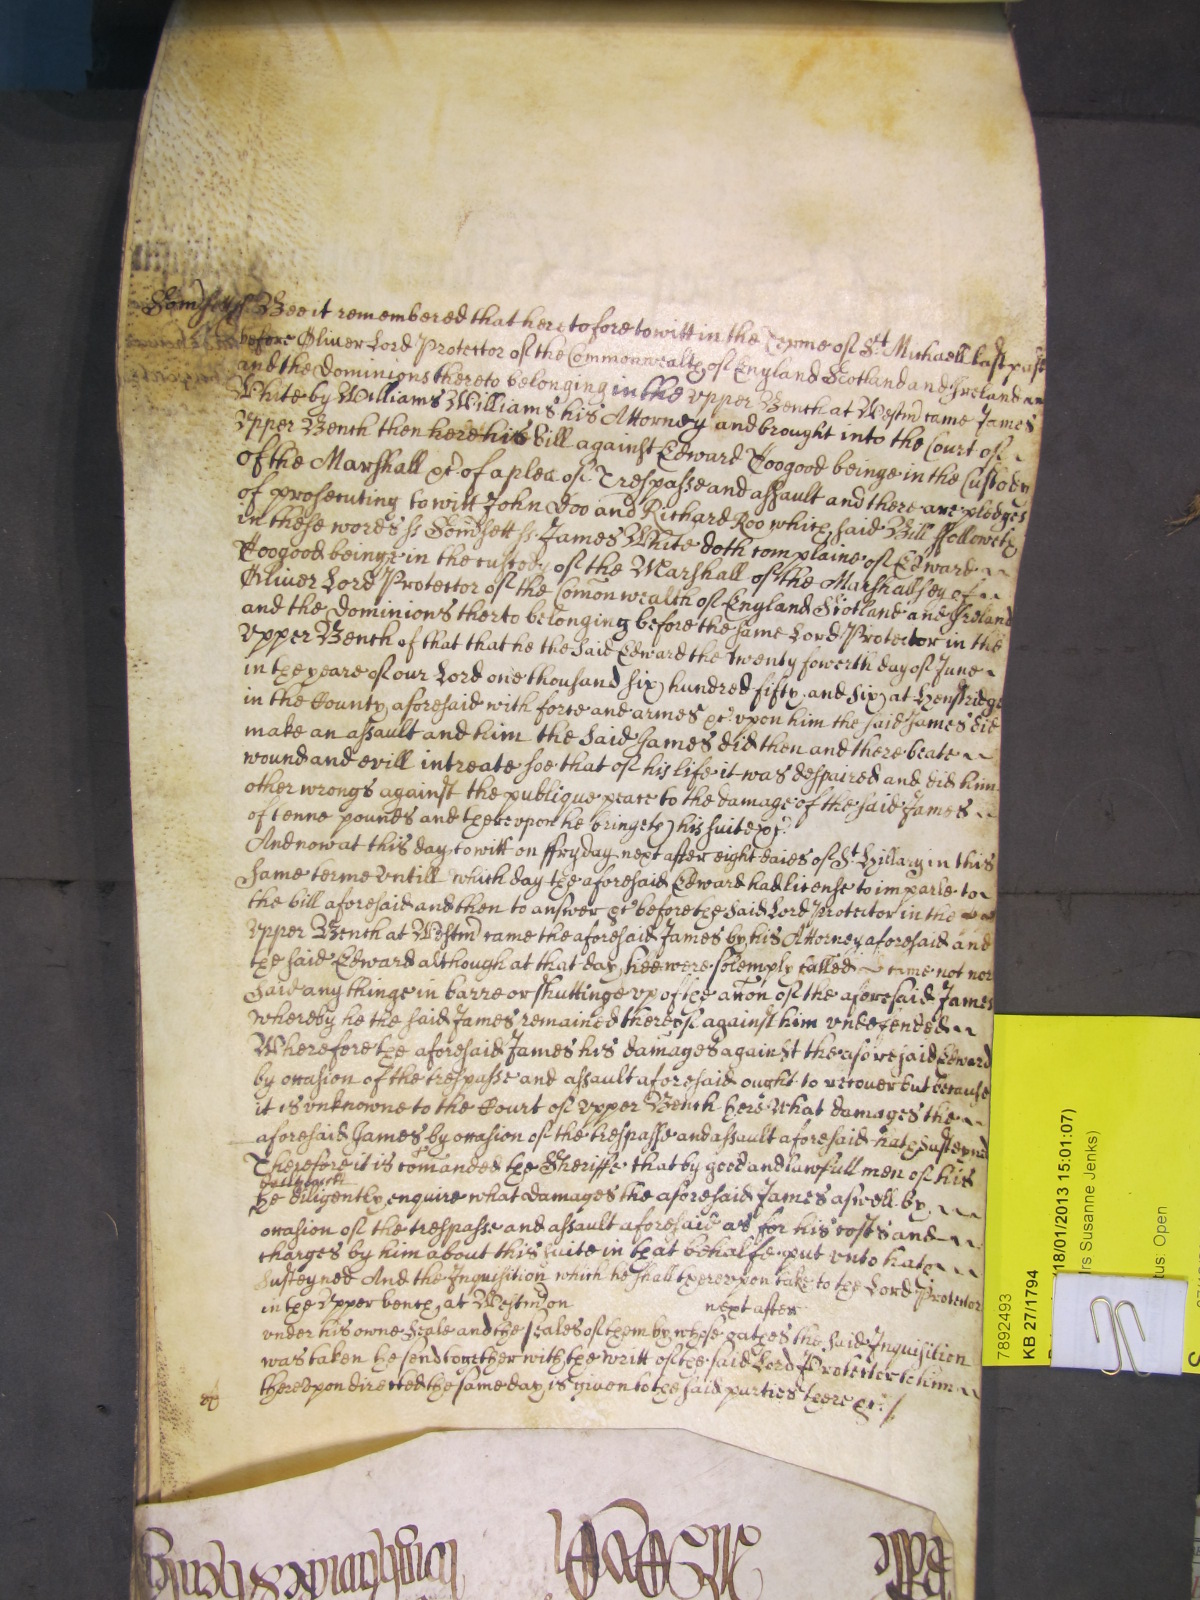 Somsett ss Bee it remembered that heretofore to witt in the Terme of St Michaell last past
before Oliver Lord Protector of the Commonwealth of England Scotland and Ireland and
and the Dominions thereto belonging in the upper Bench at Westm came James
White by Williams Williams his Attorney and brought into the Court of
Upper Bench then here his Bill against Edward Toogood beinge in the Custody
of the Marshall &c of a plea of Trespasse and assault and there are pledges
of prosecuting to witt John Doo and Richard Roo which said Bill followeth
in these words ss Somsett ss James White doth complaine of Edward
Toogood beinge in the custody of the Marshall of the Marshallsey of
Oliver Lord Protector of the Comonwealth of England Scotland and Ireland
and the Dominions therto belonging before the same Lord Protector in the
upper Bench of that that he the said Edward the twenty fowerth day of June
in the yeare of our Lord one thousand six hundred fifty and six at Henstridge
in the County aforesaid with force and armes &c upon him the said James did
make an assault and him the said James did then and there beate
wound and evill intreate soe that of his life it was despaired and did him
other wrongs against the publique peace to the damage of the said James
of tenne pounds and thereupon he bringeth his suite &c
And now at this day to witt on ffryday next after eight daies of St Hillary in this
same terme untill which day the aforesaid Edward had license to imparle to
the bill aforesaid and then to answer &c before the said Lord Protector in the
upper Bench at Westm came the aforesaid James by his Attorney aforesaid and
the said Edward although at that day hee were solemply called came not nor
said any thinge in barre or shuttinge up of the acon of the aforesaid James
whereby he the said James remained thereof against him undefended
Wherefore the aforesaid James his damages against the aforesaid Edward
by occasion of the trespasse and assault aforesaid ought to recover but because
it is unknowne to the Court of upper Bench here what damages the
aforesaid James by occasion of the trespasse and assault aforesaid hath susteyned
Therefore it is comanded the Sheriffe that by good and lawfull men of his
he diligently enquire what damages the aforesaid James aswell by
occasion of the trespasse and assault aforesaid as for his costs and
charges by him about this suite in that behalfe put unto hath
susteyned And the Inquisition which he shall thereupon take to the Lord Protector
in the Upper bench at Westm on next after
under his owne seale and the seales of them by whose oathes the said Inquisition
was taken he send together with the writt of the said Lord Protector to him
thereupon directed the same day is given to the said parties there &c
7892493
KB 27/1794
18/01/2013 15:01:07)
rs Susanne Jenks)
tus: Open